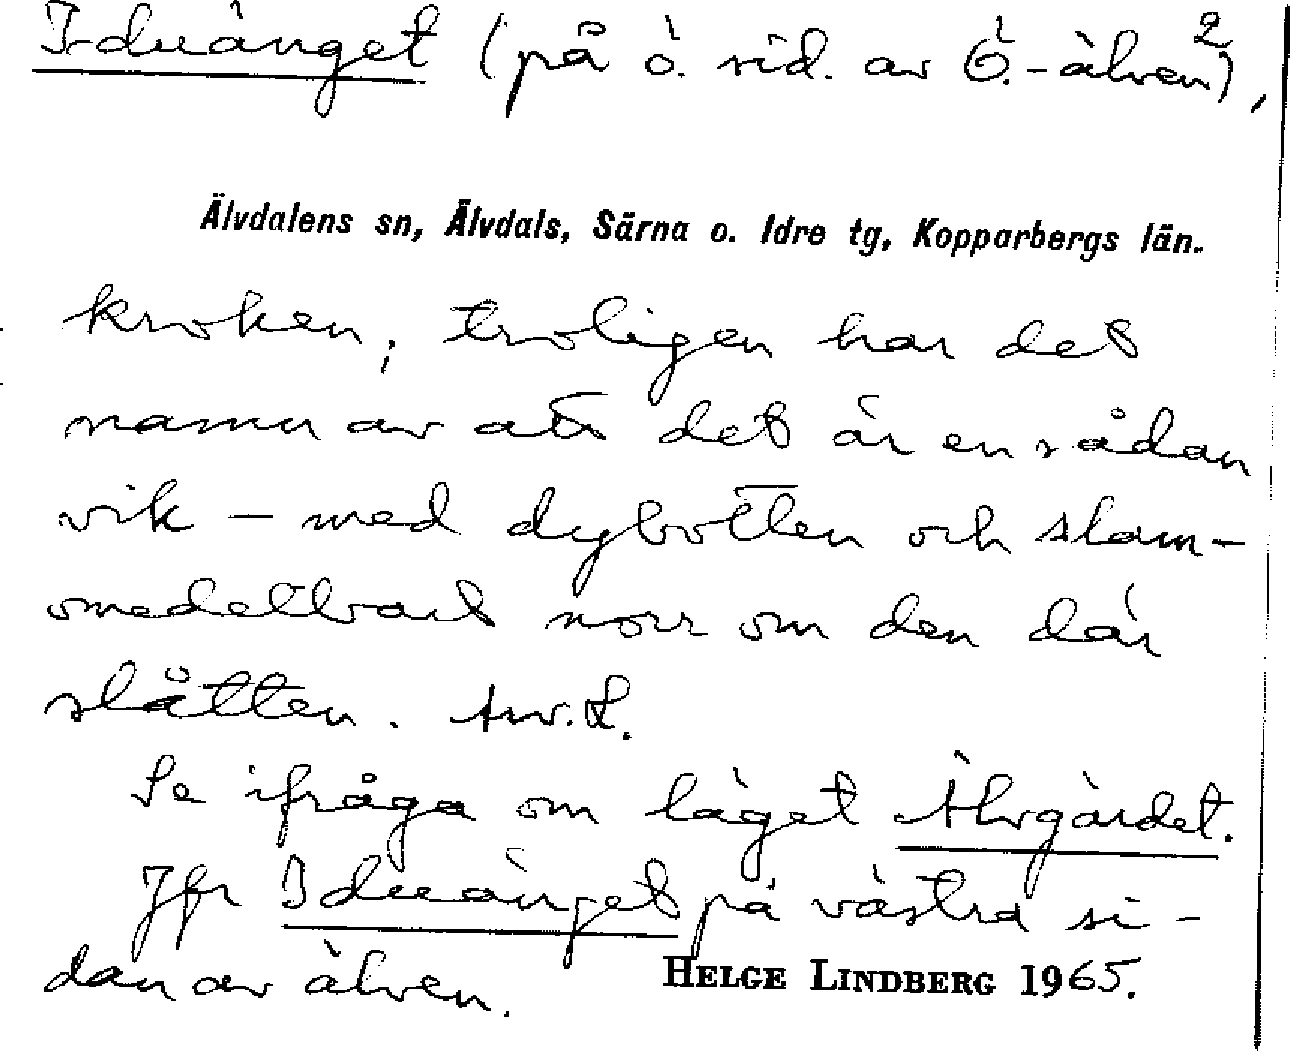 Idueänget (på ö. sid. av Ö.-älven) 2,
Älvdalens sn, Älvdals, Särna o. Idre tg, Kopparbergs län.
kroken; troligen har det
namn av att det är en sådan
vik – med dybotten och slam–
omedelbart norr om den där
slåtten. Anv. L.
Se ifråga om läget Älvgärdet.
Jfr Idueänget på västra si-
dan av älven.
HELGE LINDBERG 1965.